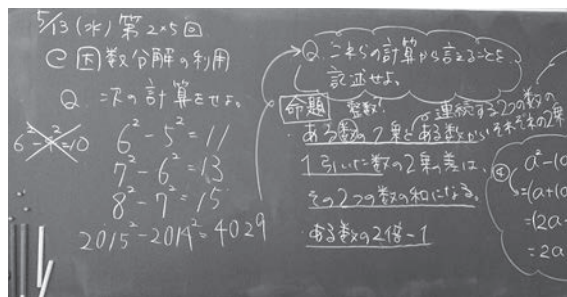 5/13(水) 第2×5回
㋓ 因数分解の利用
Q 次の計算をせよ。
6² - 5² = 11
7² - 6² = 13
8² - 7² = 15
2015² - 2014² = 4029
Q. これらの計算から言えることを
記述せよ。
命題 整数!
連続する2つの数の
・ある数の2乗とある数から それぞれの2乗
1引いた数の2乗の差は、
その2つの数の和になる。
・ある数の2倍-1
④ a² - (a
= (a + (a
= (2a -
= 2a